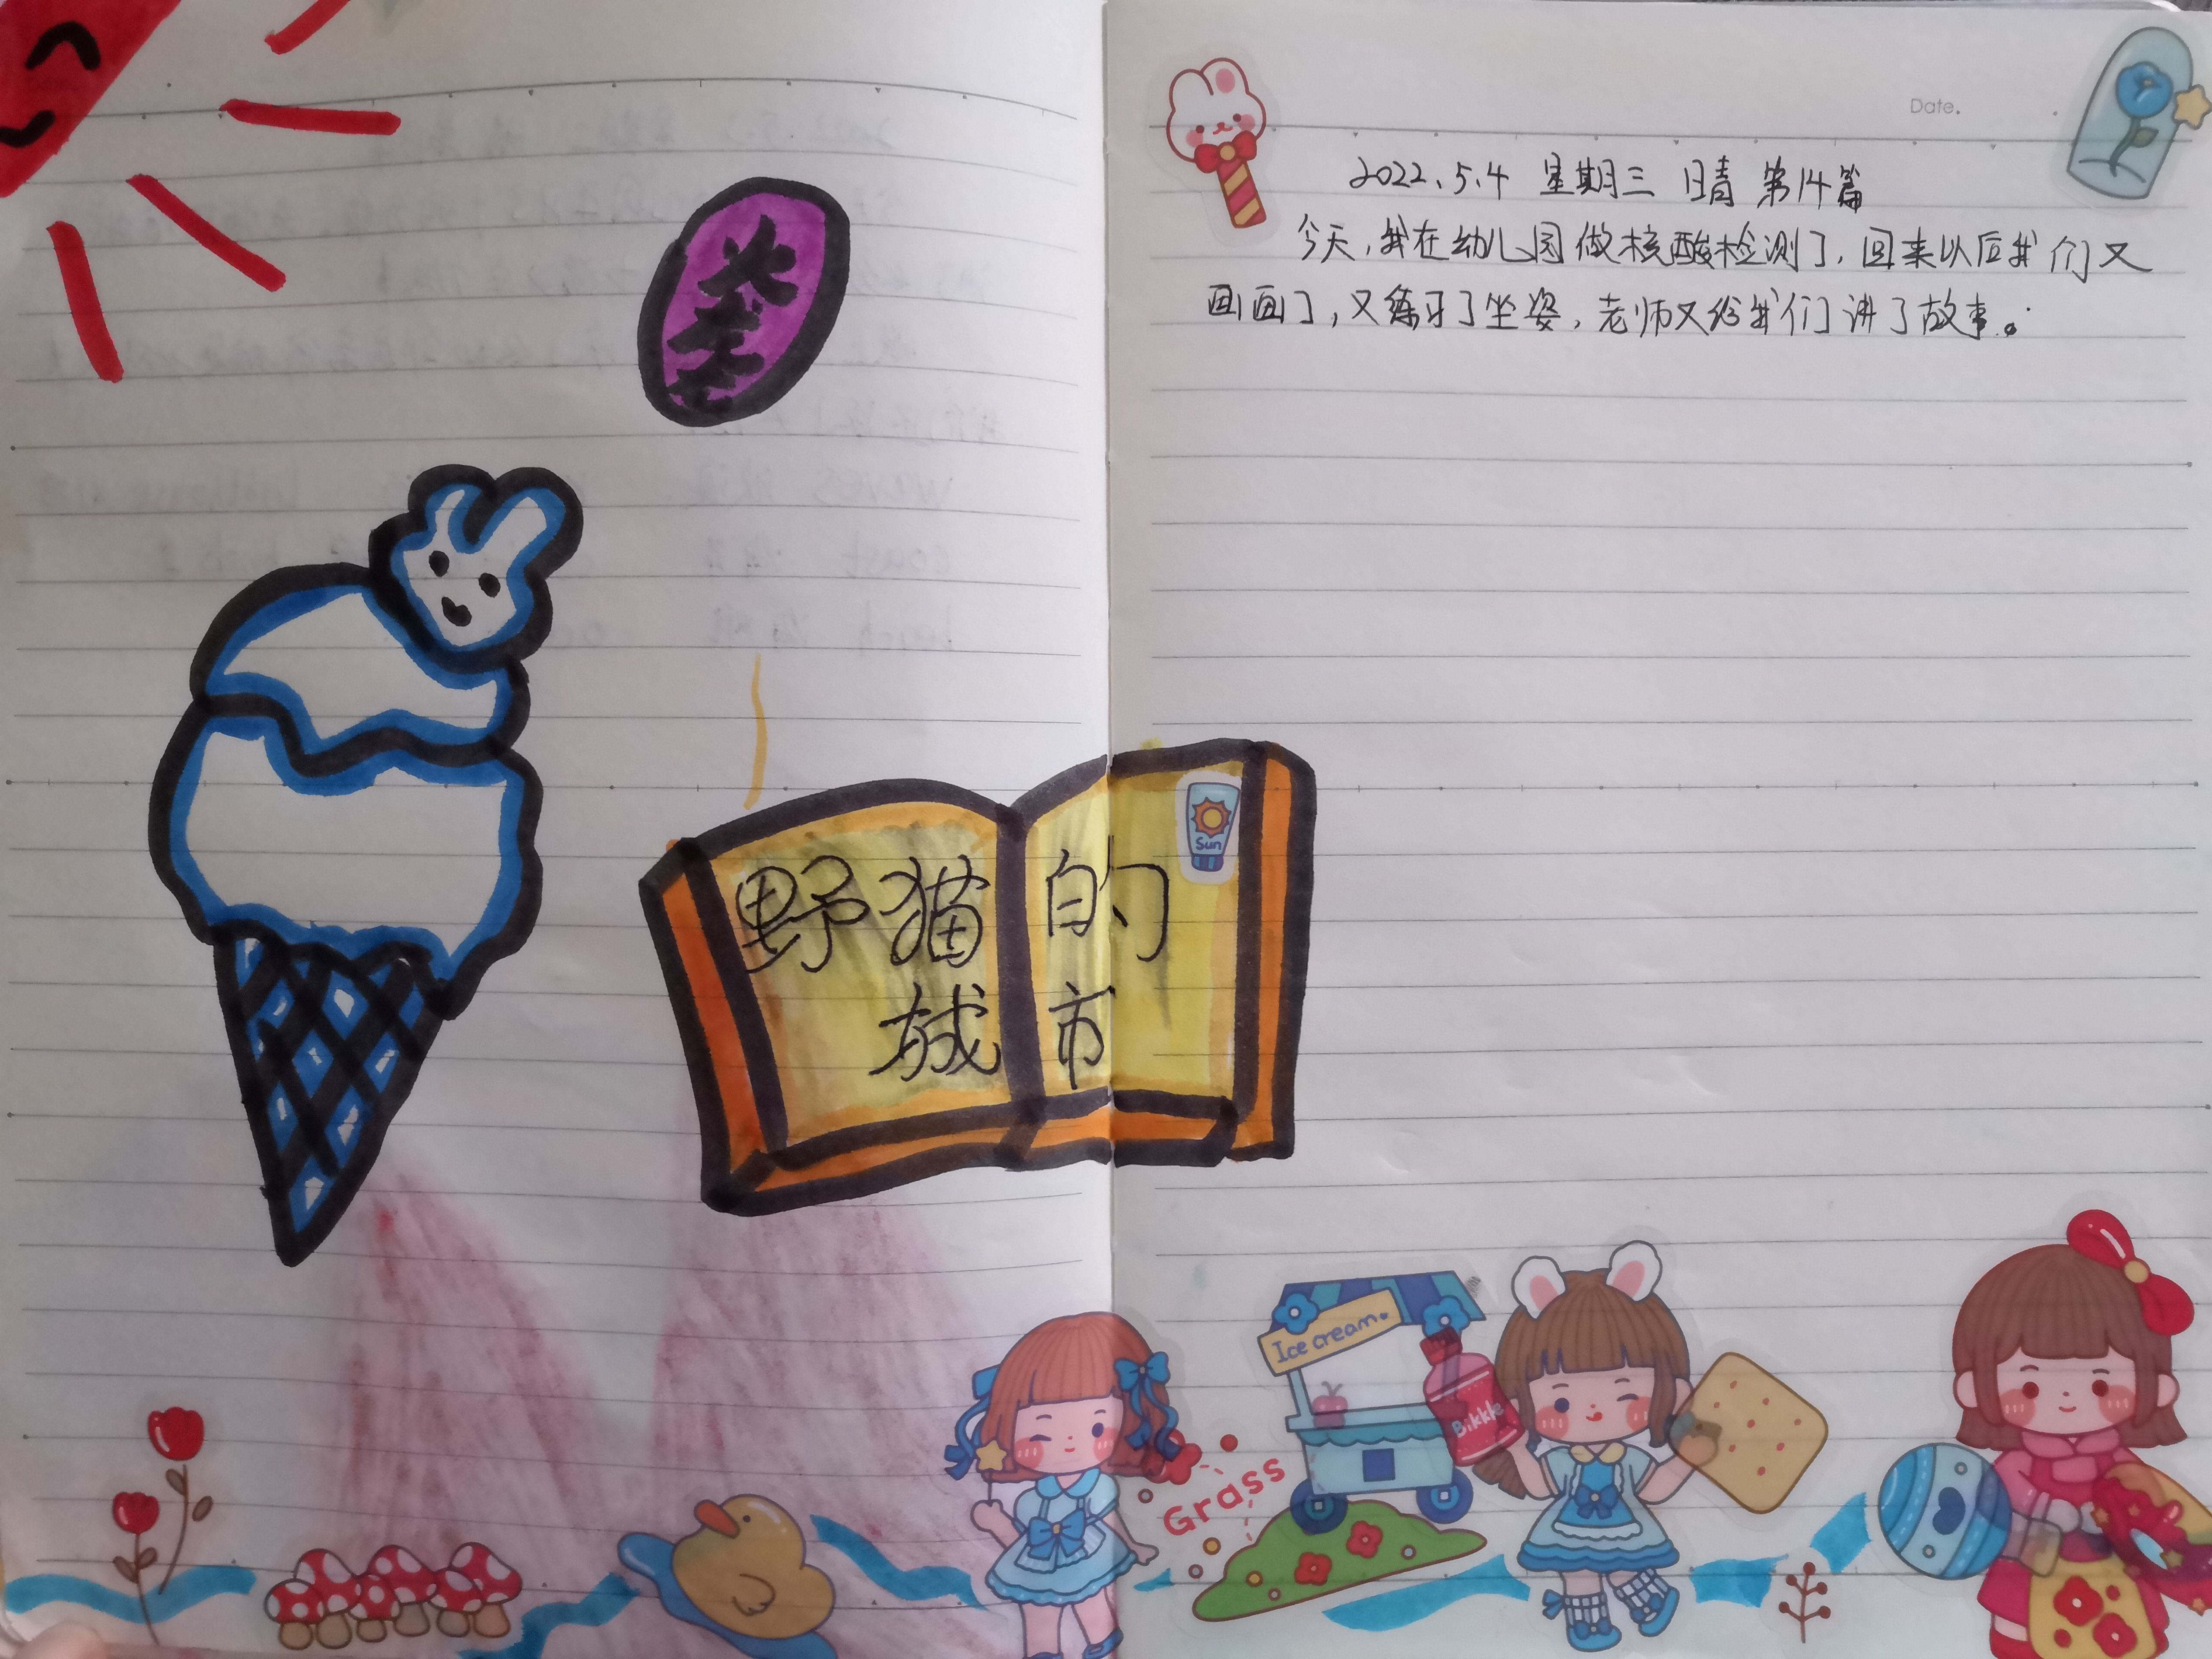 Date.
2022.5.4 星期三 晴 第14篇
今天,我在幼儿园做核酸检测了,回来以后我们又
画画了,又练习了坐姿,老师又给我们讲了故事。
Sun
野猫的
城市
Ice cream
Bikkle
Grass